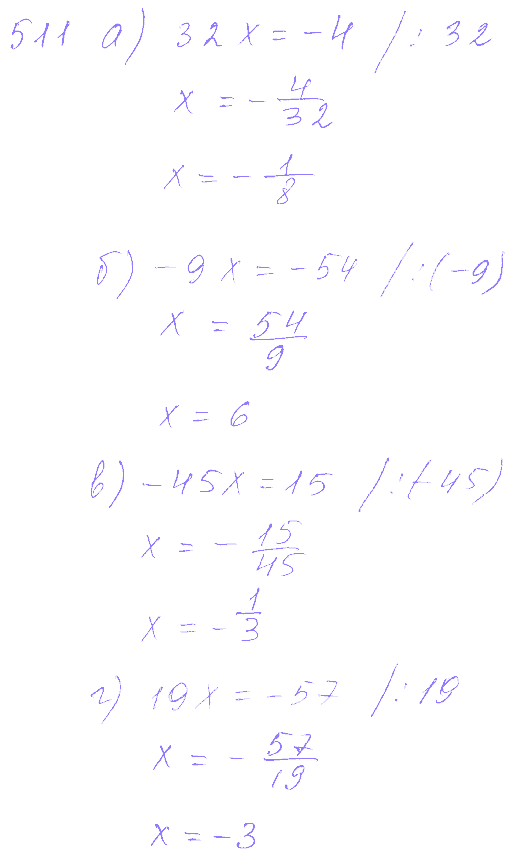 511 а) 32x = -4 /: 32
x = - 4/32
x = - 1/8
б) -9x = -54 /: (-9)
x = 54/9
x = 6
в) -45x = 15 /: (-45)
x = - 15/45
x = - 1/3
г) 19x = -57 /: 19
x = - 57/19
x = -3